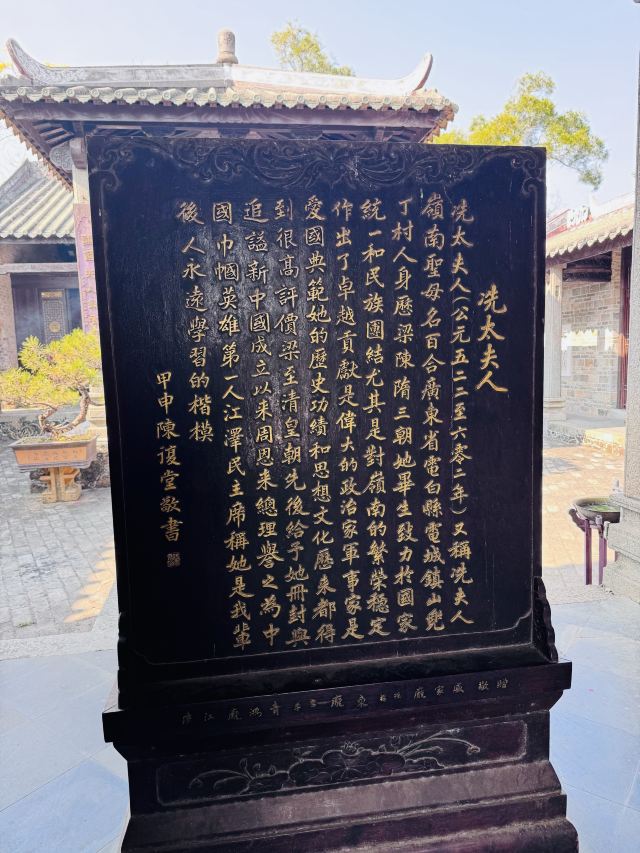 冼太夫人
冼太夫人(公元五二二至六零二年)又稱冼夫人
嶺南聖母名百合廣東省電白縣電城鎮山兜
丁村人身歷梁陳隋三朝她畢生致力於國家
統一和民族團結尤其是對嶺南的繁榮穩定
作出了卓越貢獻是偉大的政治家軍事家是
愛國典範她的歷史功績和思想文化歷來都得
到很高評價梁至清皇朝先後給予她冊封與
追謚新中國成立以來周恩來總理譽之為中
國巾幗英雄第一人江澤民主席稱她是我輩
後人永遠學習的楷模
甲申陳復堂敬書